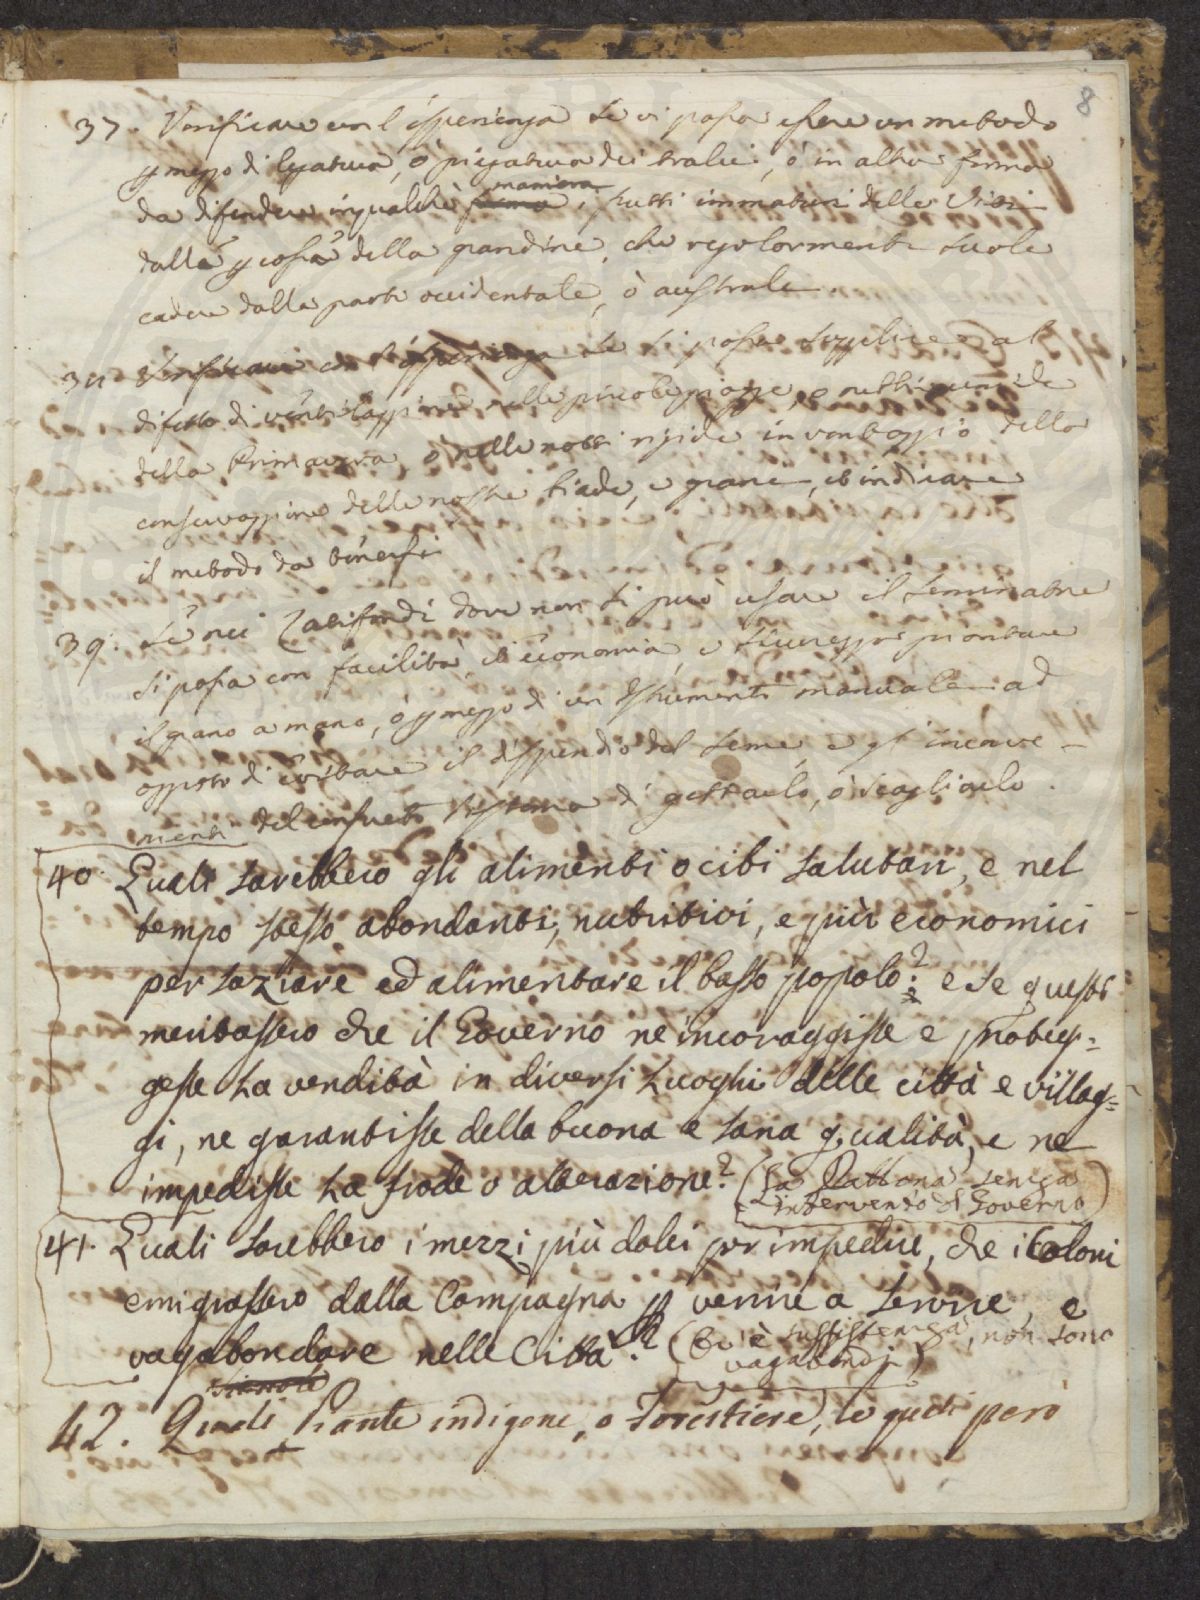 8
37. Verificare con l'esperienza se vi possa essere un metodo
p mezzo di legatura, ò piegatura dei tralci, ò in altra forma
da difendere in qualche forma maniera i frutti immaturi delle Viti
dalla pcossa della grandine, che regolarmente suole
cadere dalla parte occidentale, ò australe
38 Verificare con l'esperienza se si possa supplire al
difetto di ventilazzione nelle piccole piogge, e notti umide
della Primavera, ò nelle notti rigide in vantaggio della
conservazzione delle nostre biade, e grani, ed indicare
il metodo da tenersi
39. Se nei Latifondi dove non si può usare il seminatore
si possa con facilità, ed economia, e sicurezza piantare
il grano a mano, ò p mezzo di un istrumento manuale ad
oggetto di evitare il dispendio del seme, e gl' incove-
nienti del consueto sistema di gettarlo, ò scagliarlo.
40. Quali sarebbero gli alimenti o cibi salutari, e nel
tempo stesso abondanti, nutritivi, e più economici
per saziare ed alimentare il basso popolo? e se questi
meritassero che il Governo ne incoraggisse e proteg=
gesse la vendita in diversi luoghi delle città e villag=
gi, ne garantisse della buona e sana qualità, e ne
impedisse la frode o alterazione? (La Pattona senza
intervento del Governo)
41. Quali sarebbero i mezzi più dolci per impedire, che i Coloni
emigrassero dalla Campagna p venire a servire, e
vagabondare nelle Città? (Se v'è sussistenza, non sono
vagabondi)
42. Quali Piante indigene, o Forestiere, le quali però